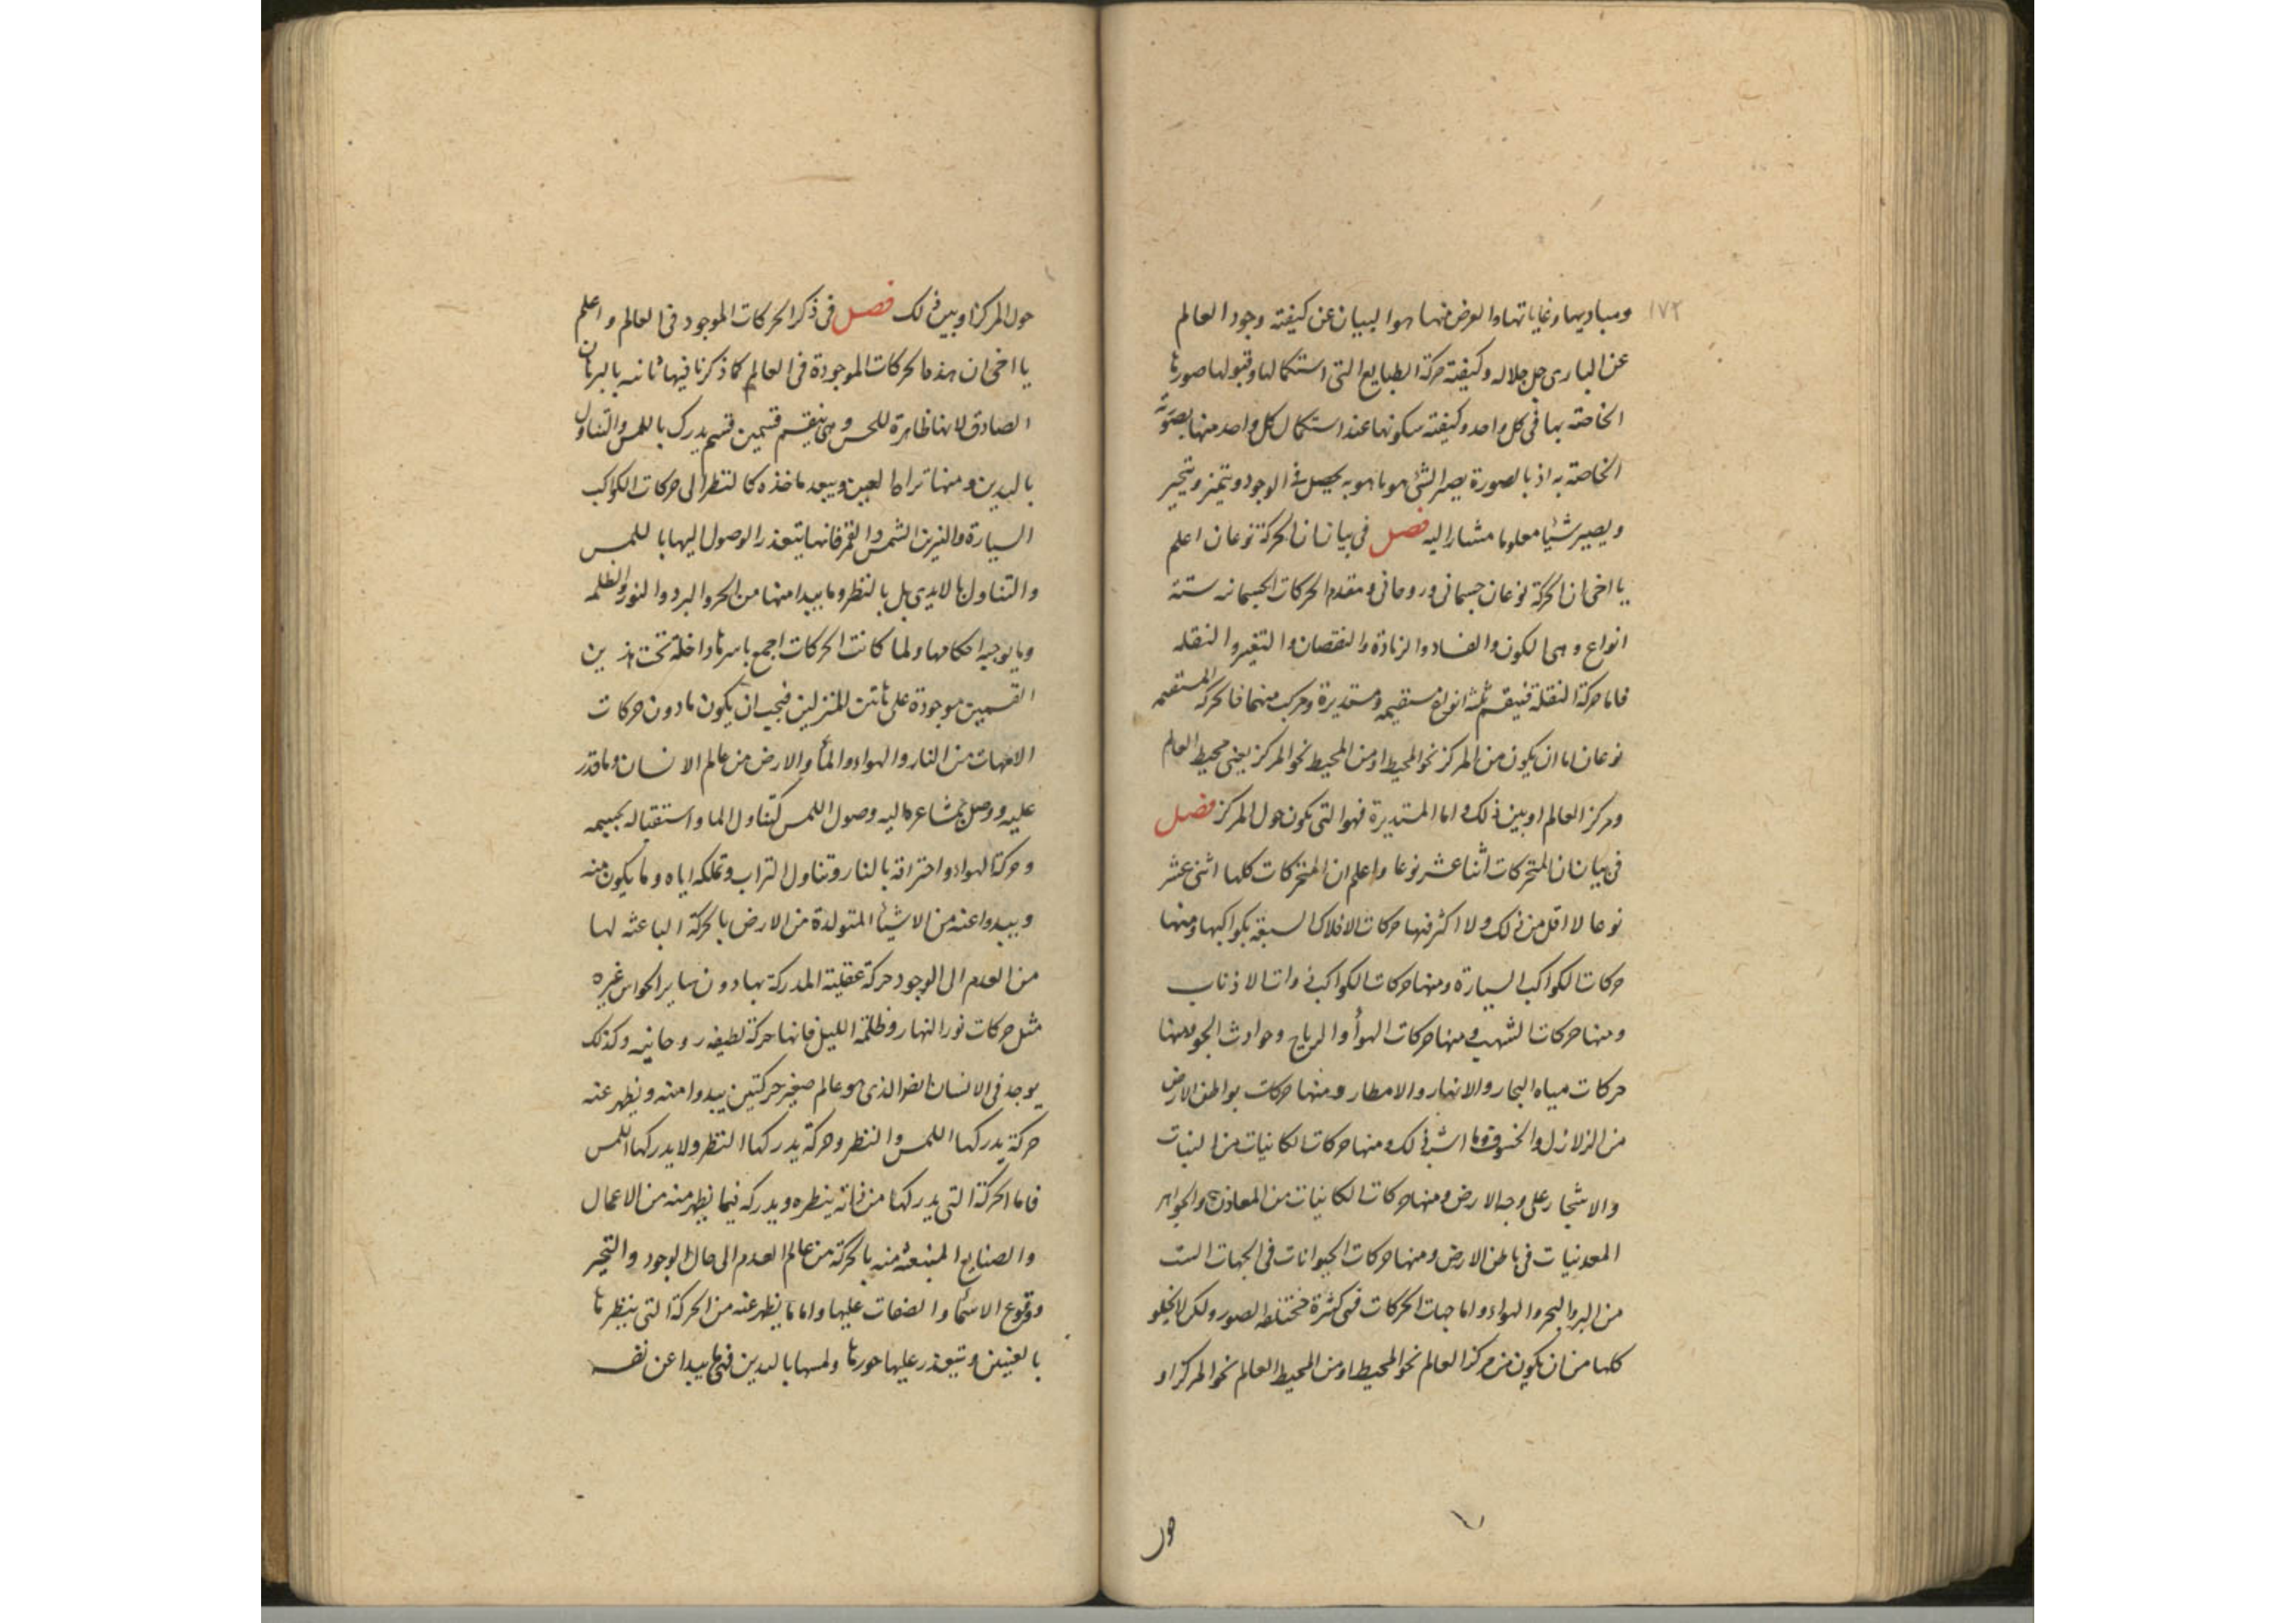 ١٧٢
ومباديها وغاياتها والغرض منها هو البيان عن كيفية وجود العالم
عن الباري جل جلاله وكيفية حركة الطبايع التي استكمالها وقبولها صورها
الخاصة بها في كل واحد وكيفية سكونها عند استكمال كل واحد منها بصورته
الخاصة به اذ بالصورة يصير الشئ هو ما هو به يحصل في الوجود ويتميز ويتحيز
ويصير شيئا معلوما مشار اليه فصل في بيان ان الحركة نوعان اعلم
يا اخي ان الحركة نوعان جسماني وروحاني ومقدم الحركات الجسمانيه ستة
انواع وهي الكون والفساد والزيادة والنقصان والتغير والنقله
فاما حركة النقلة فينقسم ثلثة انواع مستقيمه ومستديرة ومركب منهما فالحركه المستقيمه
نوعان اما ان يكون من المركز نحو المحيط او من المحيط نحو المركز يعني محيط العالم
ومركز العالم او بين ذلك واما المستديرة فهو التي تكون حول المركز فصل
في بيان ان المتحركات اثنا عشر نوعا واعلم ان المتحركات كلها اثني عشر
نوعا لا اقل من ذلك ولا اكثر فمنها حركات الافلاك السبعة بكواكبها ومنها
حركات الكواكب السيارة ومنها حركات الكواكب ذوات الاذناب
ومنها حركات الشهب ومنها حركات الهوأ والرياح وحوادث الجو ومنها
حركات مياه البحار والانهار والامطار ومنها حركات بواطن الارض
من الزلازل والخسوف وما اشبه ذلك ومنها حركات الكائنات من النبات
والاشجار على وجه الارض ومنها حركات الكائنات من المعادن والجواهر
المعدنيات في باطن الارض ومنها حركات الحيوانات في الجهات الست
من البر والبحر والهواء واما جهات الحركات فهي كثرة مختلفه الصور ولكن لا يخلو
كلها من ان يكون من مركز العالم نحو المحيط او من المحيط العالم نحو المركز او
حول
حول المركز او بين ذلك فصل في ذكر الحركات الموجود في العالم واعلم
يا اخي ان هذه الحركات الموجودة في العالم كما ذكرنا فيها بالبرهان
الصادق لانها ظاهرة للحس وهي ينقسم قسمين قسم يدرك باللمس والتناول
باليدين ومنها تراه العين ويبعد ماخذه كالنظر الى حركات الكواكب
السيارة والنيرين الشمس والقمر فانها يتعذر الوصول اليها باللمس
والتناول بالايدي بل بالنظر وما يبدا منها من الحر والبرد والنور والظلمه
وما يوجبه احكامها ولما كانت الحركات اجمع باسرها داخلة تحت هذين
القسمين موجودة على هاتين المنزلين فيجب ان يكون ما دون حركات
الامهات من النار والهواء والمأ والارض من عالم الانسان وما قدر
عليه ووصل بمشاعره اليه وصول اللمس كتناول الما واستقباله بجسمه
وحركة الهواء واحتراقه بالنار وتناول التراب وتملكه اياه وما يكون منه
ويبدوا عنه من الاشيأ المتولدة من الارض بالحركة الباعثه لها
من العدم الى الوجود حركة عقلية المدركة بها دون ساير الحواس غيره
مثل حركات نور النهار وظلمة الليل فانها حركة لطيفه روحانيه وكذلك
يوجد في الانسان ايضا الذي هو عالم صغير حركتين يبدوا منه ويظهر عنه
حركة يدركها اللمس والنظر وحركة يدركها النظر ولا يدركها اللمس
فاما الحركة التي يدركها من ذاته ينظره ويدركه فيما يظهر منه من الاعمال
والصنايع المنبعثه منه بالحركة من عالم العدم الى حال الوجود والتحيز
ووقوع الاسمأ والصفات عليها واما ما يظهر عنه من الحركة التي ينظرها
بالعينين ويتعذر عليها ولمسها باليدين فهي ما يبدا عن نفسه